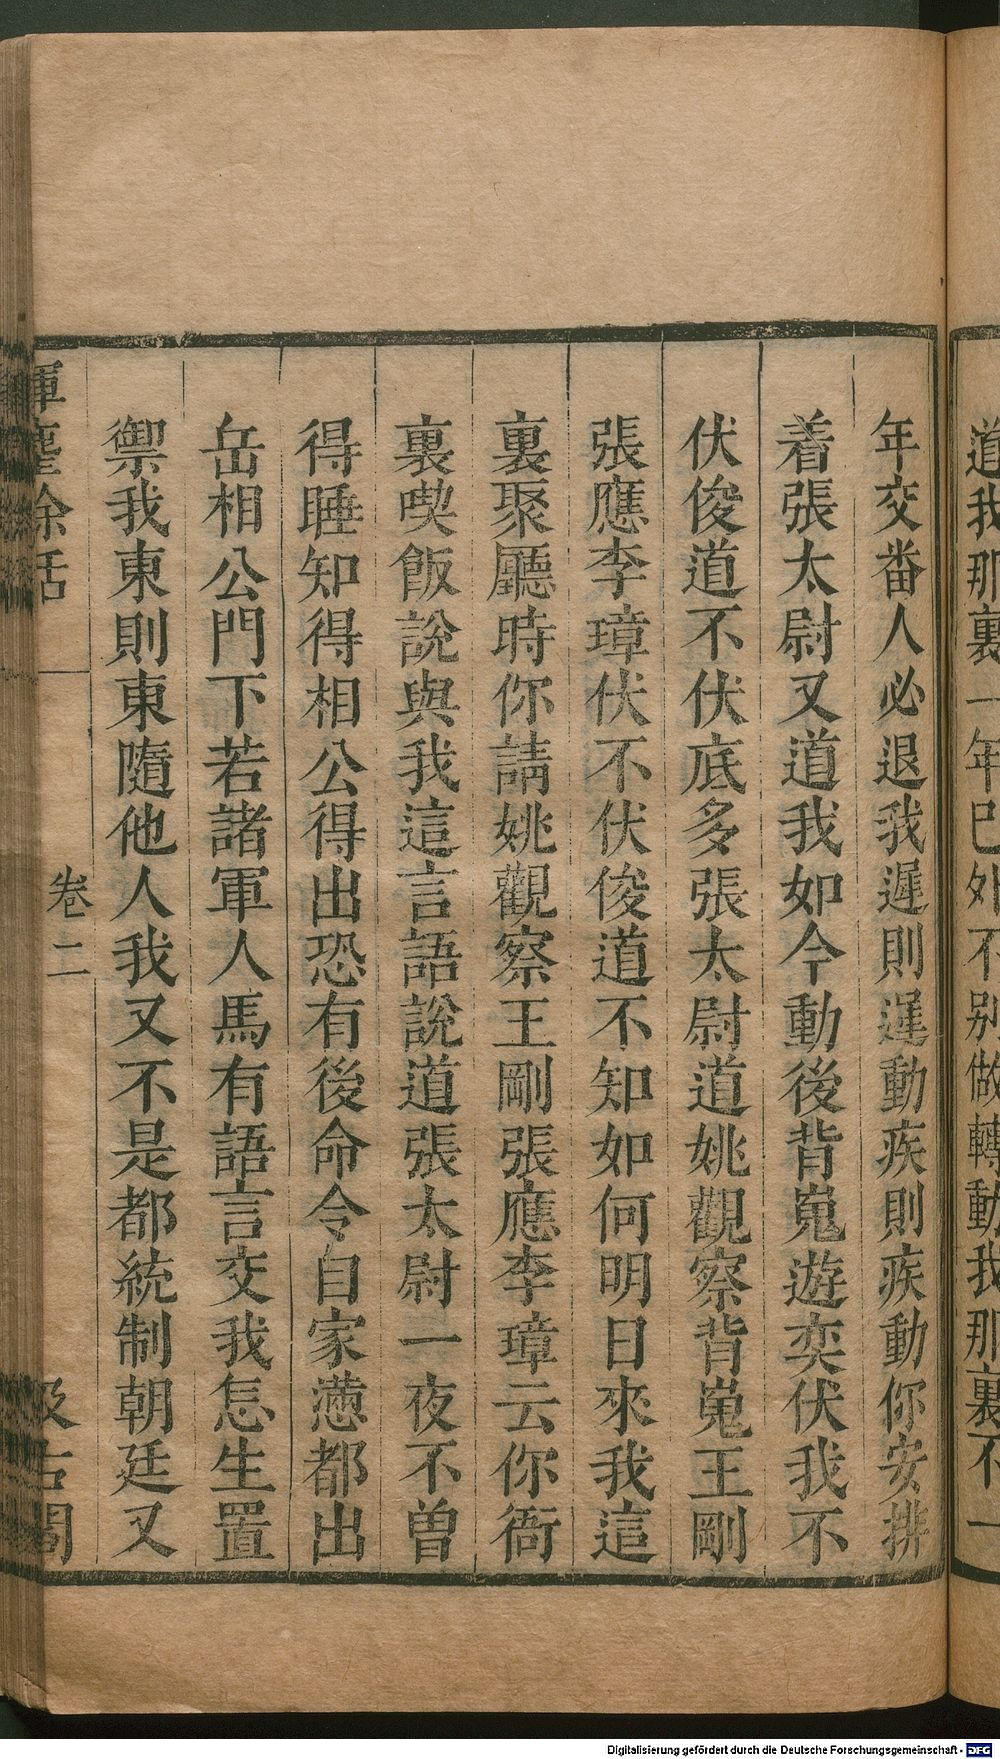 道我那裏一年已外不别做轉動我那裏不一
年交畨人必退我遲則遲動疾則疾動你安排
着張太尉又道我如今動後背嵬遊奕伏我不
伏俊道不伏底多張太尉道姚觀察背嵬王剛
張應李璋伏不伏俊道不知如何明日來我這
裏聚廳時你請姚觀察王剛張應李璋云你衙
裏喫飯說與我這言語說道張太尉一夜不曾
得睡知得相公得出恐有後命令自家懑都出
岳相公門下若諸軍人馬有語言交我怎生置
禦我東則東隨他人我又不是都統制朝廷又
揮塵餘話
卷二
汲古閣
Digitalisierung gefördert durch die Deutsche Forschungsgemeinschaft - DFG